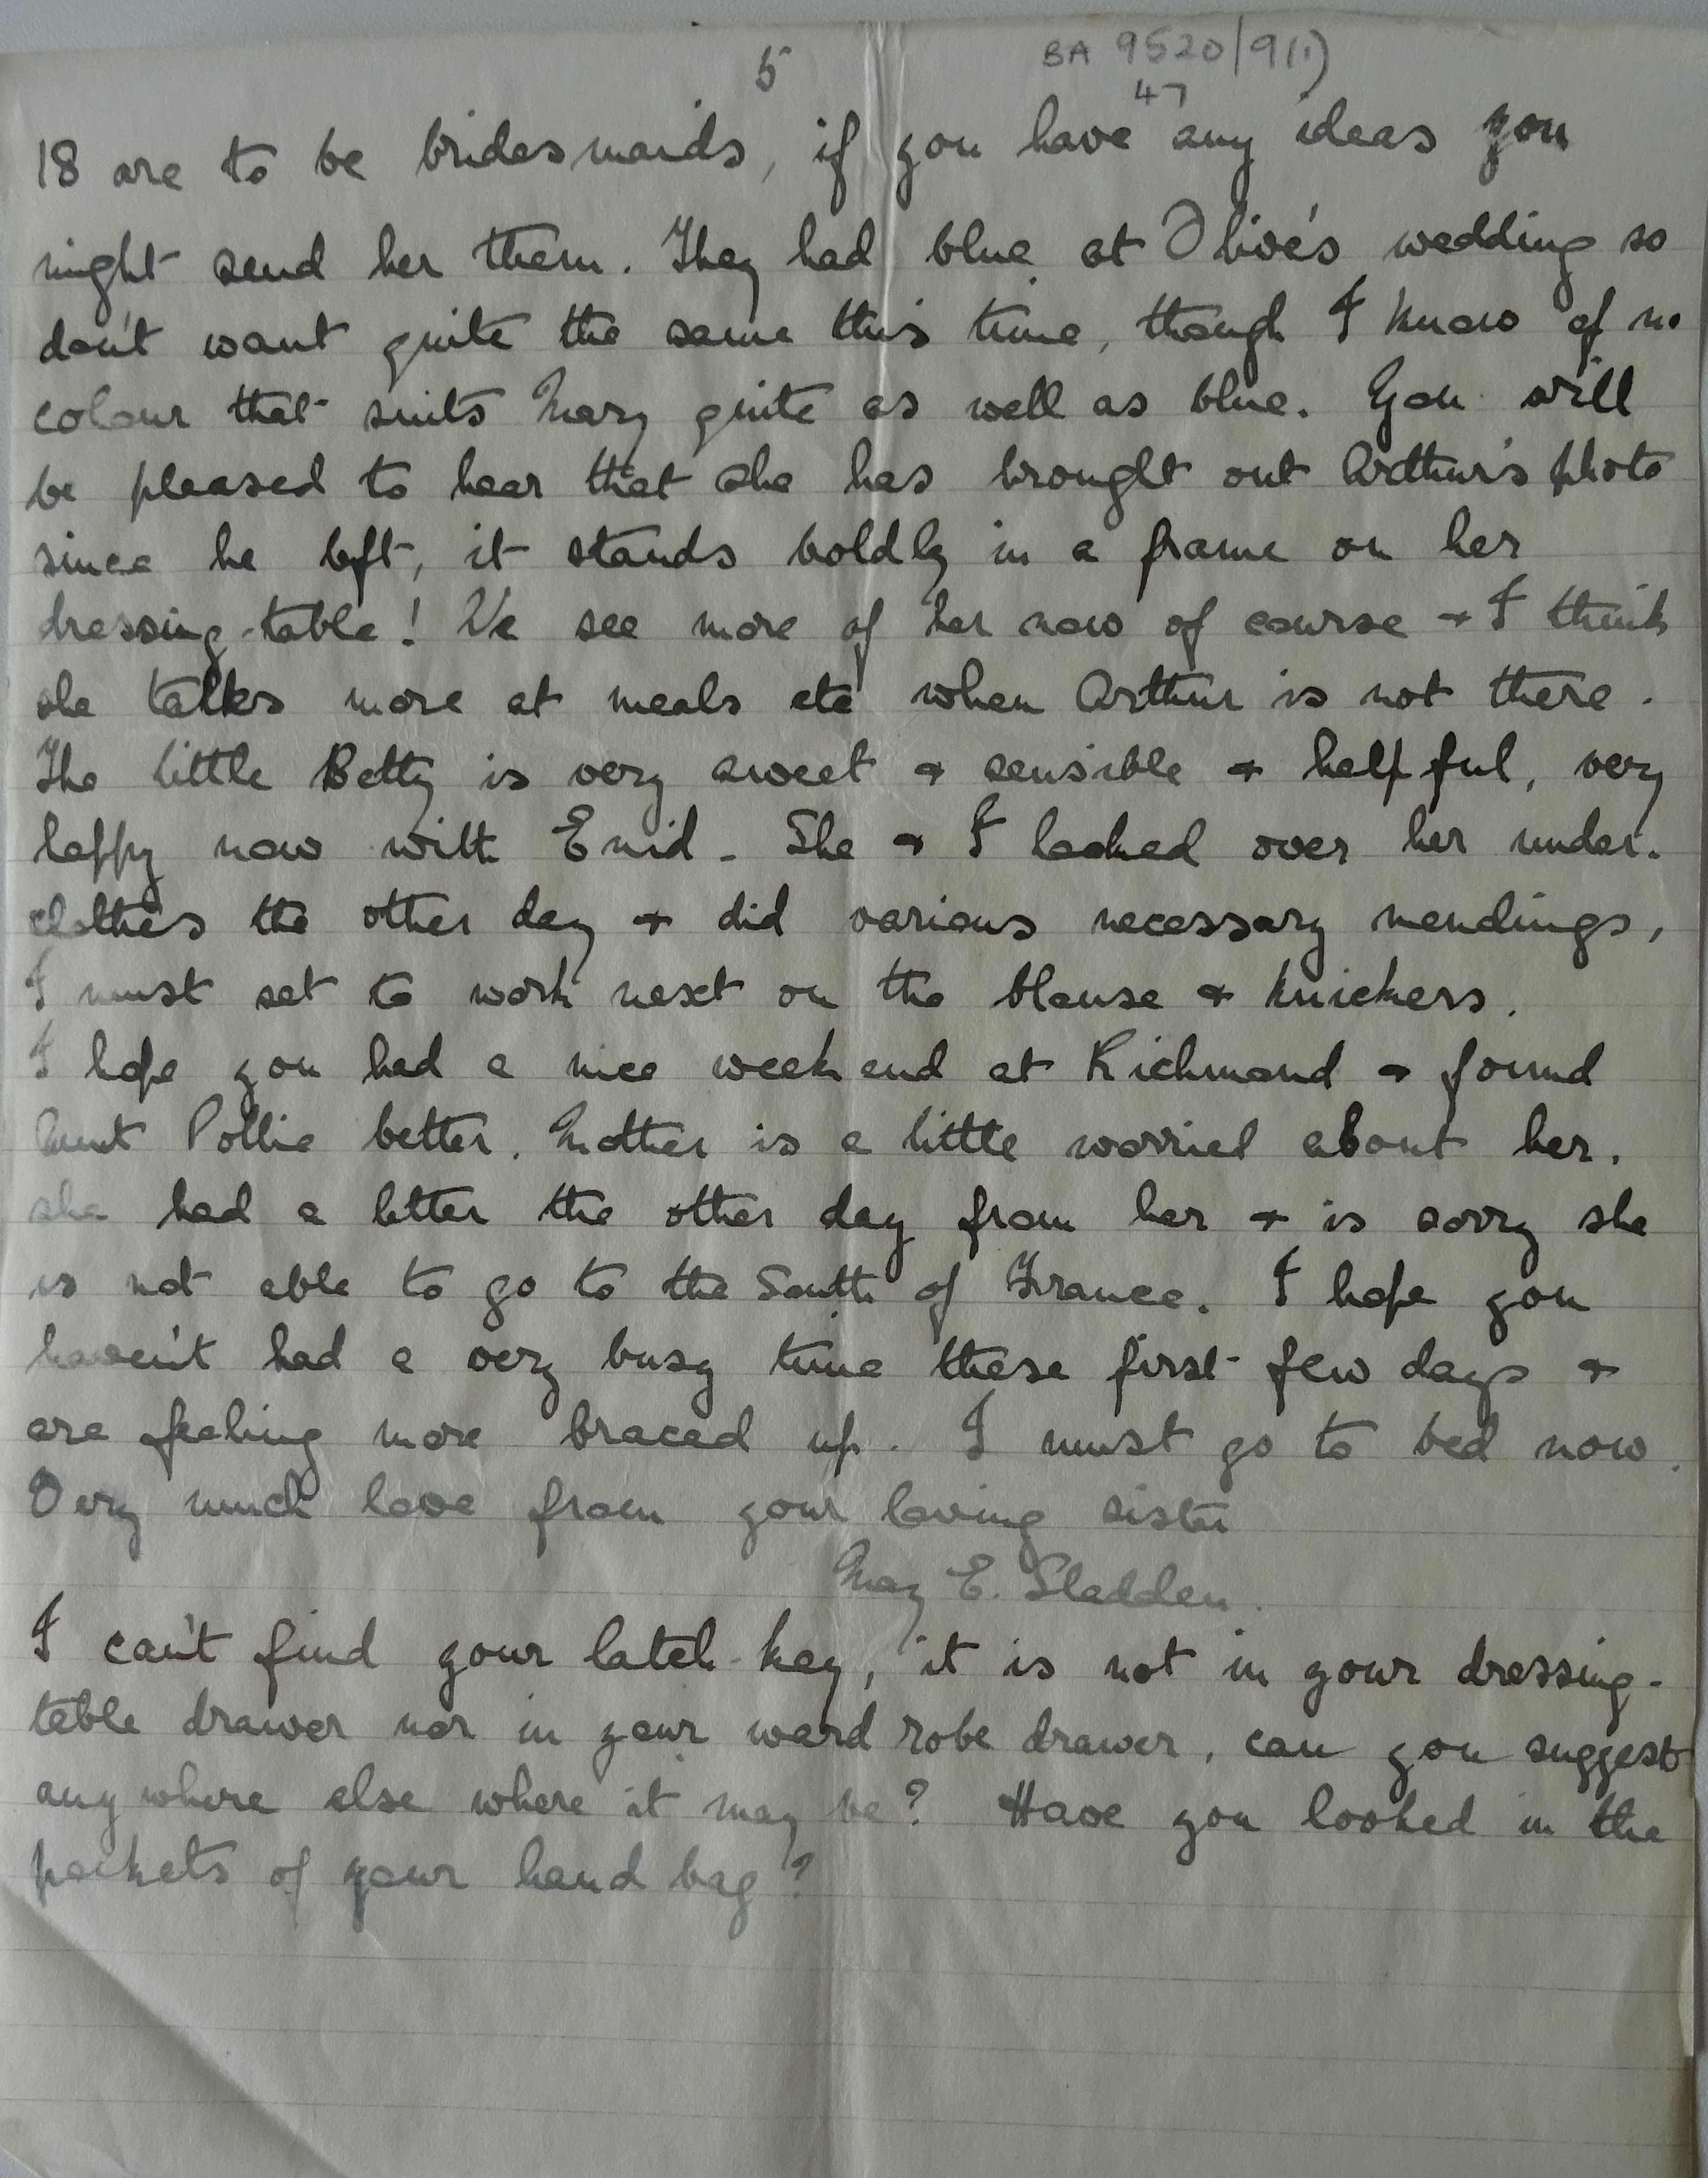 5
BA 9520/9(1)
47
18 are to be bridesmaids, if you have any ideas you
might send her them. They had blue at Olive's wedding so
don't want quite the same this time, though I know of no
colour that suits Mary quite as well as blue. You will
be pleased to hear that she has brought out Arthur's photo
since he left, it stands boldly in a frame on her
dressing-table! We see more of her now of course + I think
she talks more at meals etc when Arthur is not there.
The little Betty is very sweet + sensible + helpful, very
happy now with Enid. She + I looked over her under-
clothes the other day + did various necessary mendings,
I must set to work next on the blouse + knickers.
I hope you had a nice week end at Richmond + found
Aunt Pollie better. Mother is a little worried about her.
she had a letter the other day from her + is sorry she
is not able to go to the South of France. I hope you
haven't had a very busy time these first few days +
are feeling more braced up. I must go to bed now.
Very much love from your loving sister
May E. Sladden.
I can't find your latch-key, it is not in your dressing-
table drawer nor in your ward robe drawer, can you suggest
any where else where it may be? Have you looked in the
pockets of your hand bag?